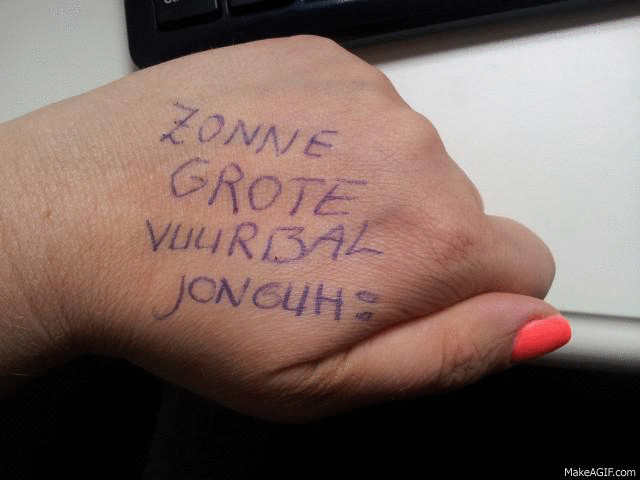 ZONNE
GROTE
VUURBAL
JONGUH=
MakeAGIF.com